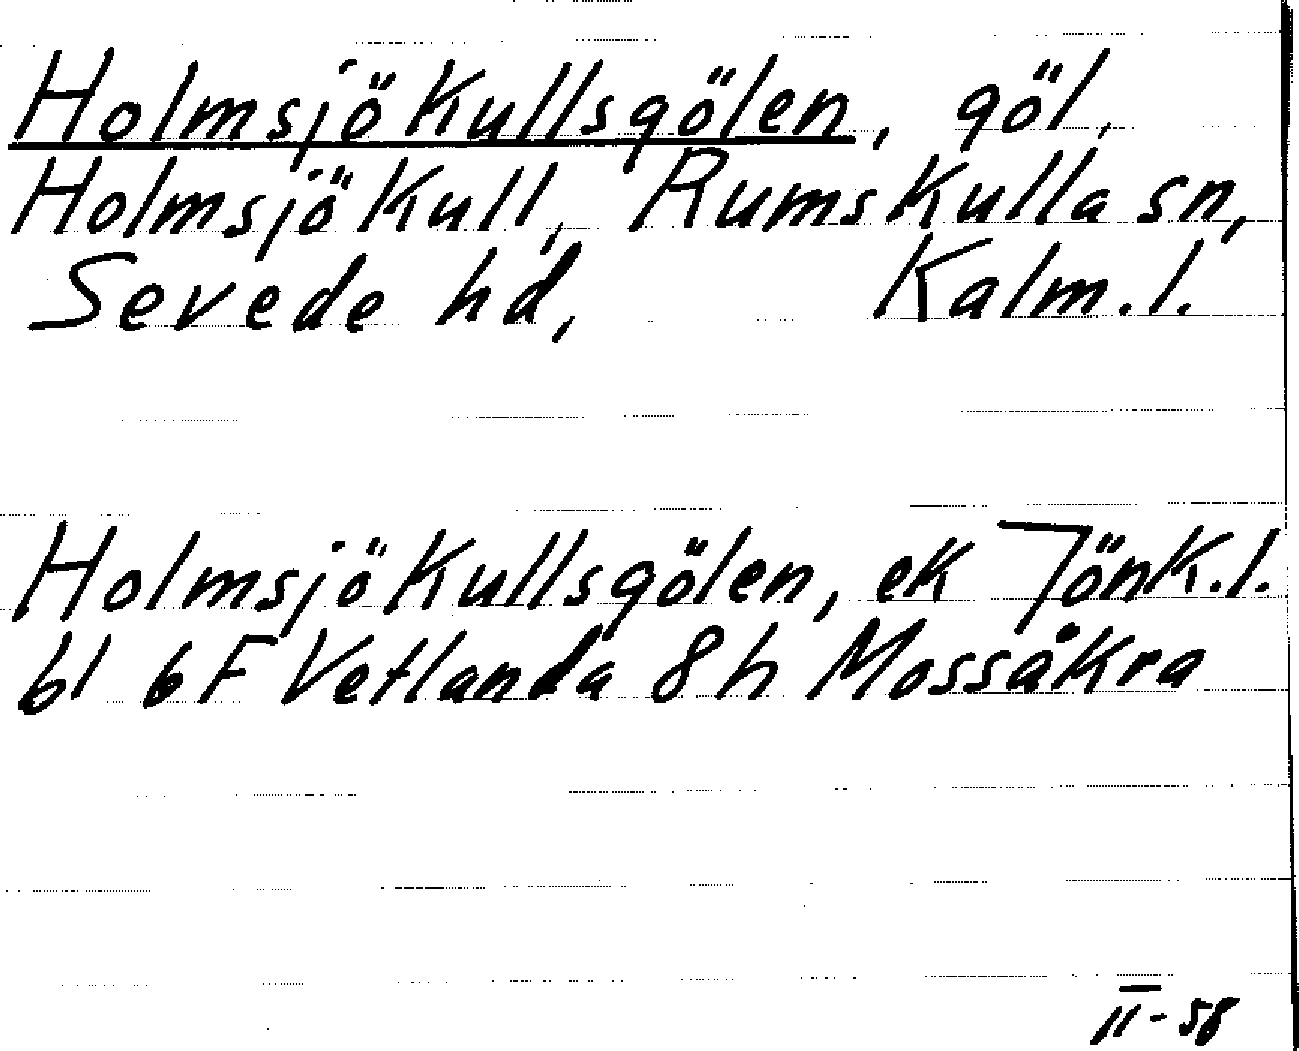 Holmsjökullsgölen, göl,
Holmsjökull, Rumskulla sn,
Sevede hd, Kalm. l.
Holmsjökullsgölen, ek Jönk. l.
bl 6F Vetlanda 8h Mossåkra
II-58